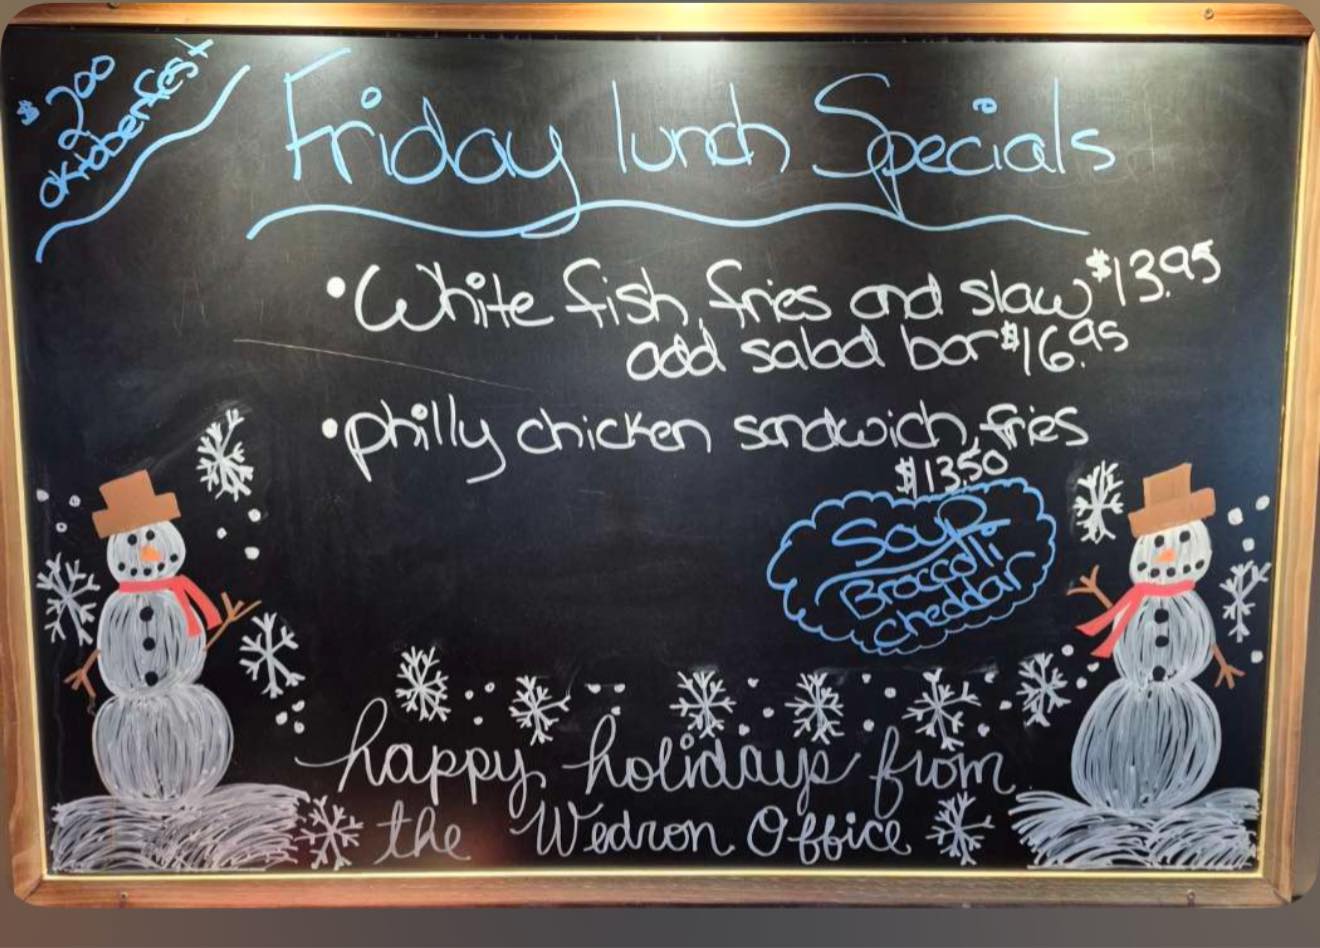 $2.00
oktoberfest
Friday lunch Specials
•White fish, fries and slaw $13.95
add salad bar $16.95
•philly chicken sandwich, fries
$13.50
Soup
Broccoli
cheddar
happy holidays from
the Wedron Office